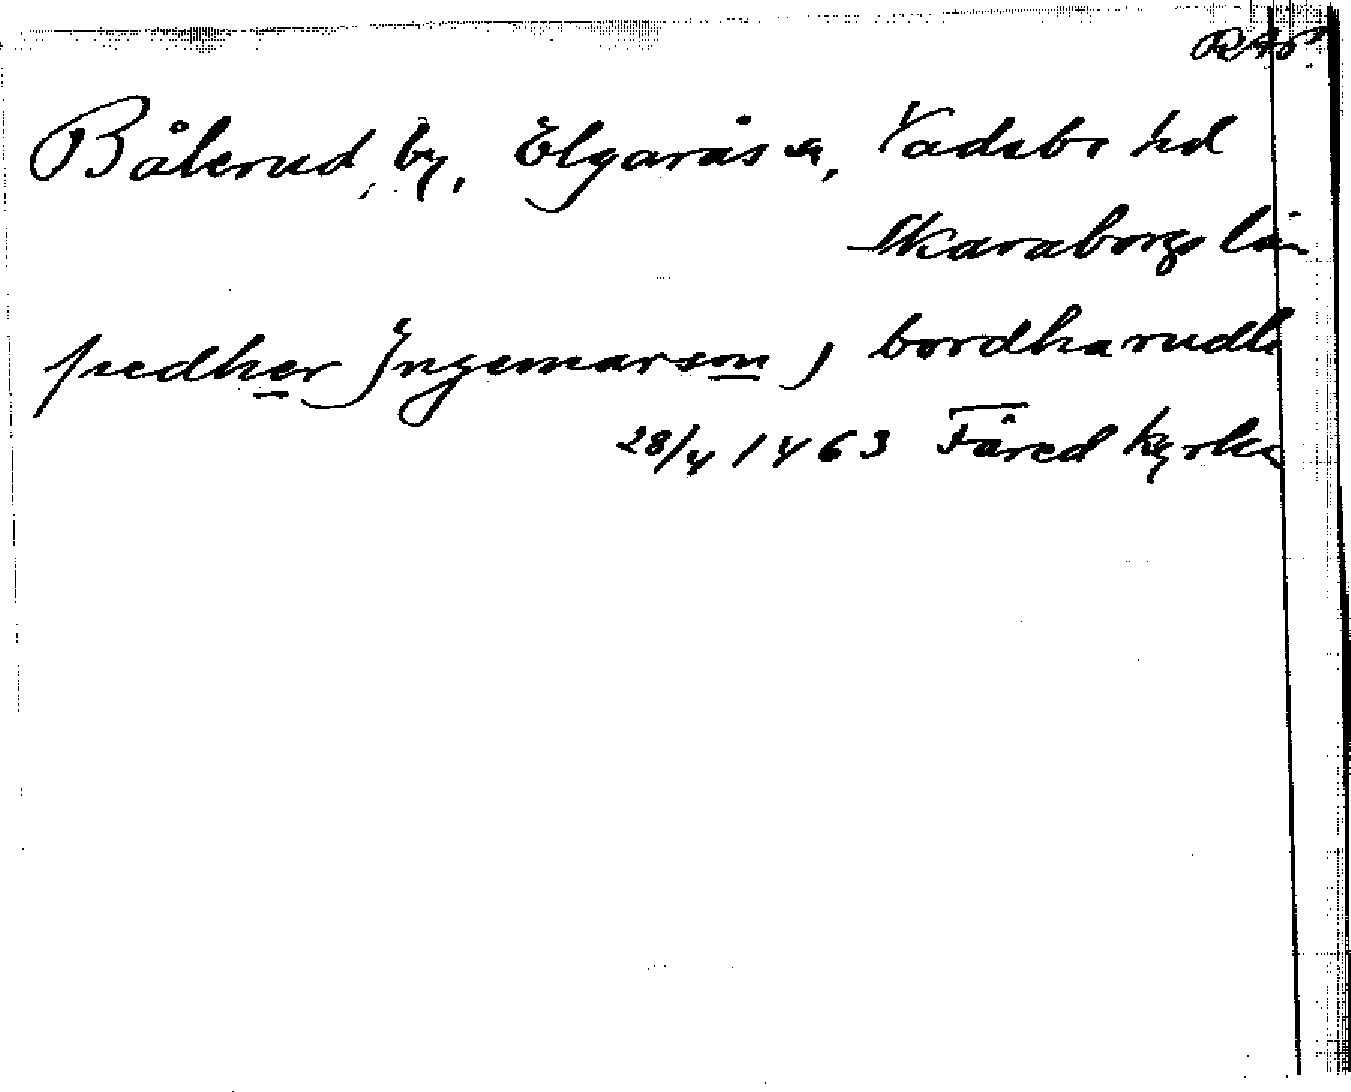 Bålerud, by, Älgarås sn, Vadsbo hd
Skaraborgs län
pædher Ingemarson j bordharudh
28/4 1463 Fåred kyrka